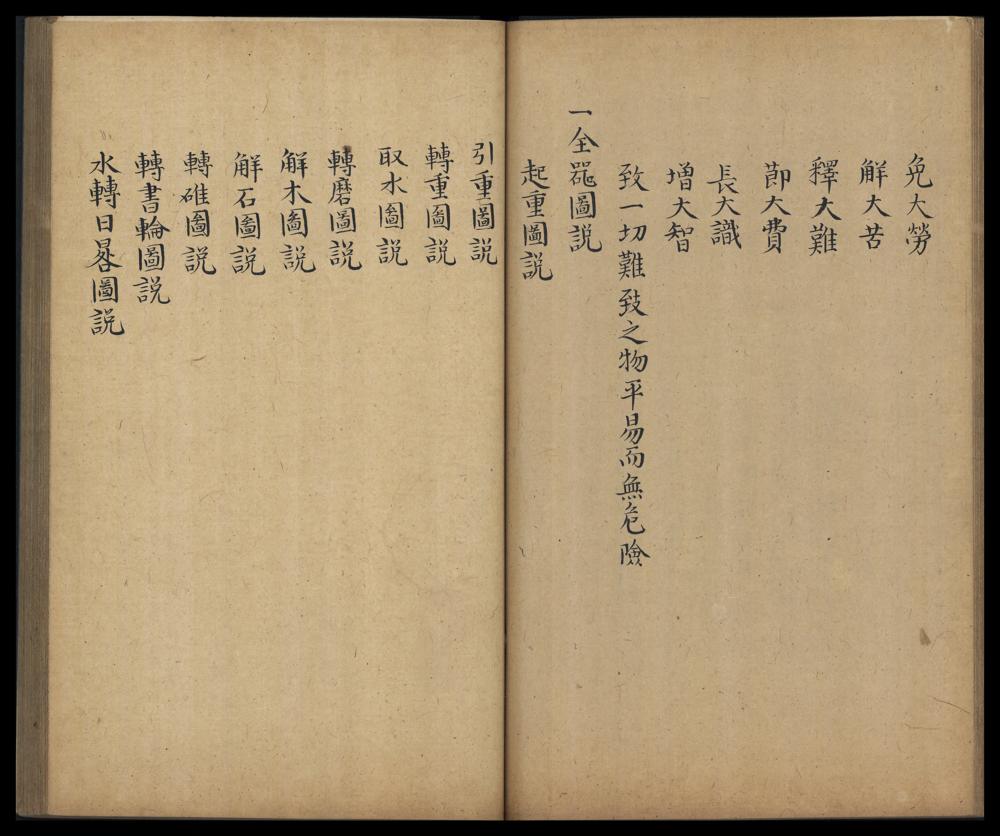 免大勞
解大苦
釋大難
節大費
長大識
增大智
致一切難致之物平易而無危險
一全器圖説
起重圖説
引重圖説
轉重圖説
取水圖説
轉磨圖説
解木圖説
解石圖説
轉碓圖説
轉書輪圖説
水轉日晷圖説